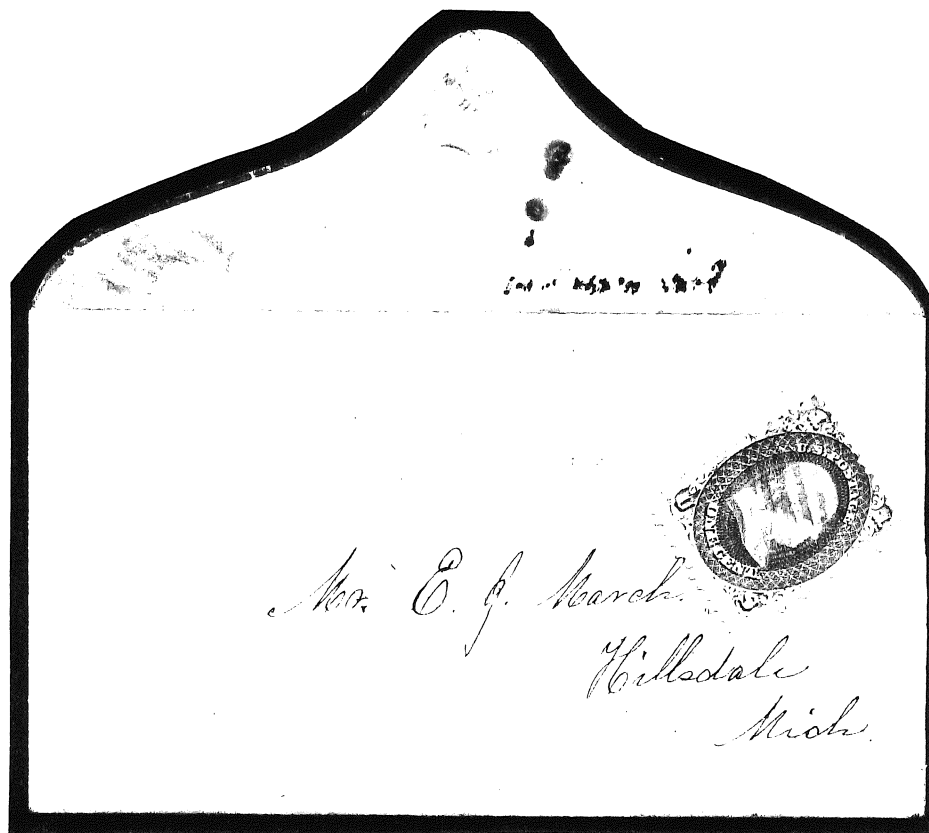 U.S. POSTAGE
ONE CENT
Mr. E. J. March.
Hillsdale
Mich.